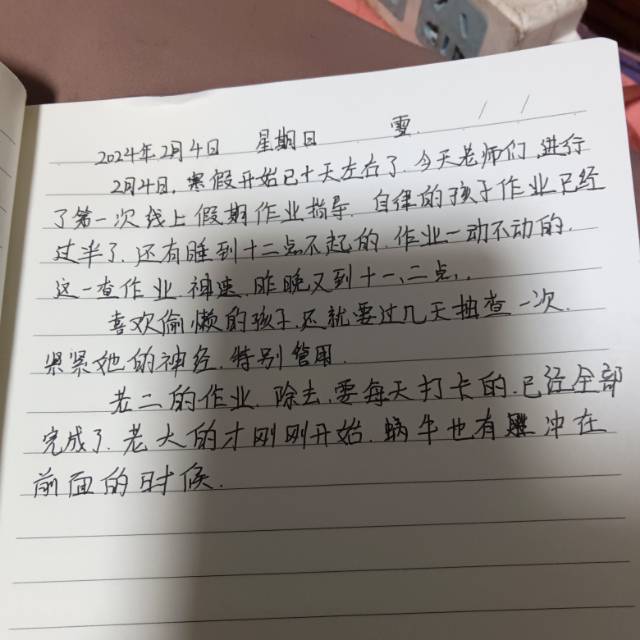 2024年2月4日 星期日 雪.
2月4日, 寒假开始已十天左右了. 今天老师们, 进行
了第一次线上假期作业指导. 自律的孩子作业已经
过半了. 还有睡到十二点不起的. 作业一动不动的.
这一查作业. 神速. 昨晚又到十一、二点..
喜欢偷懒的孩子. 还就要过几天抽查一次.
紧紧她的神经. 特别管用.
老二的作业. 除去, 要每天打卡的. 已经全部
完成了. 老大的才刚刚开始. 蜗牛也有 冲在
前面的时候.